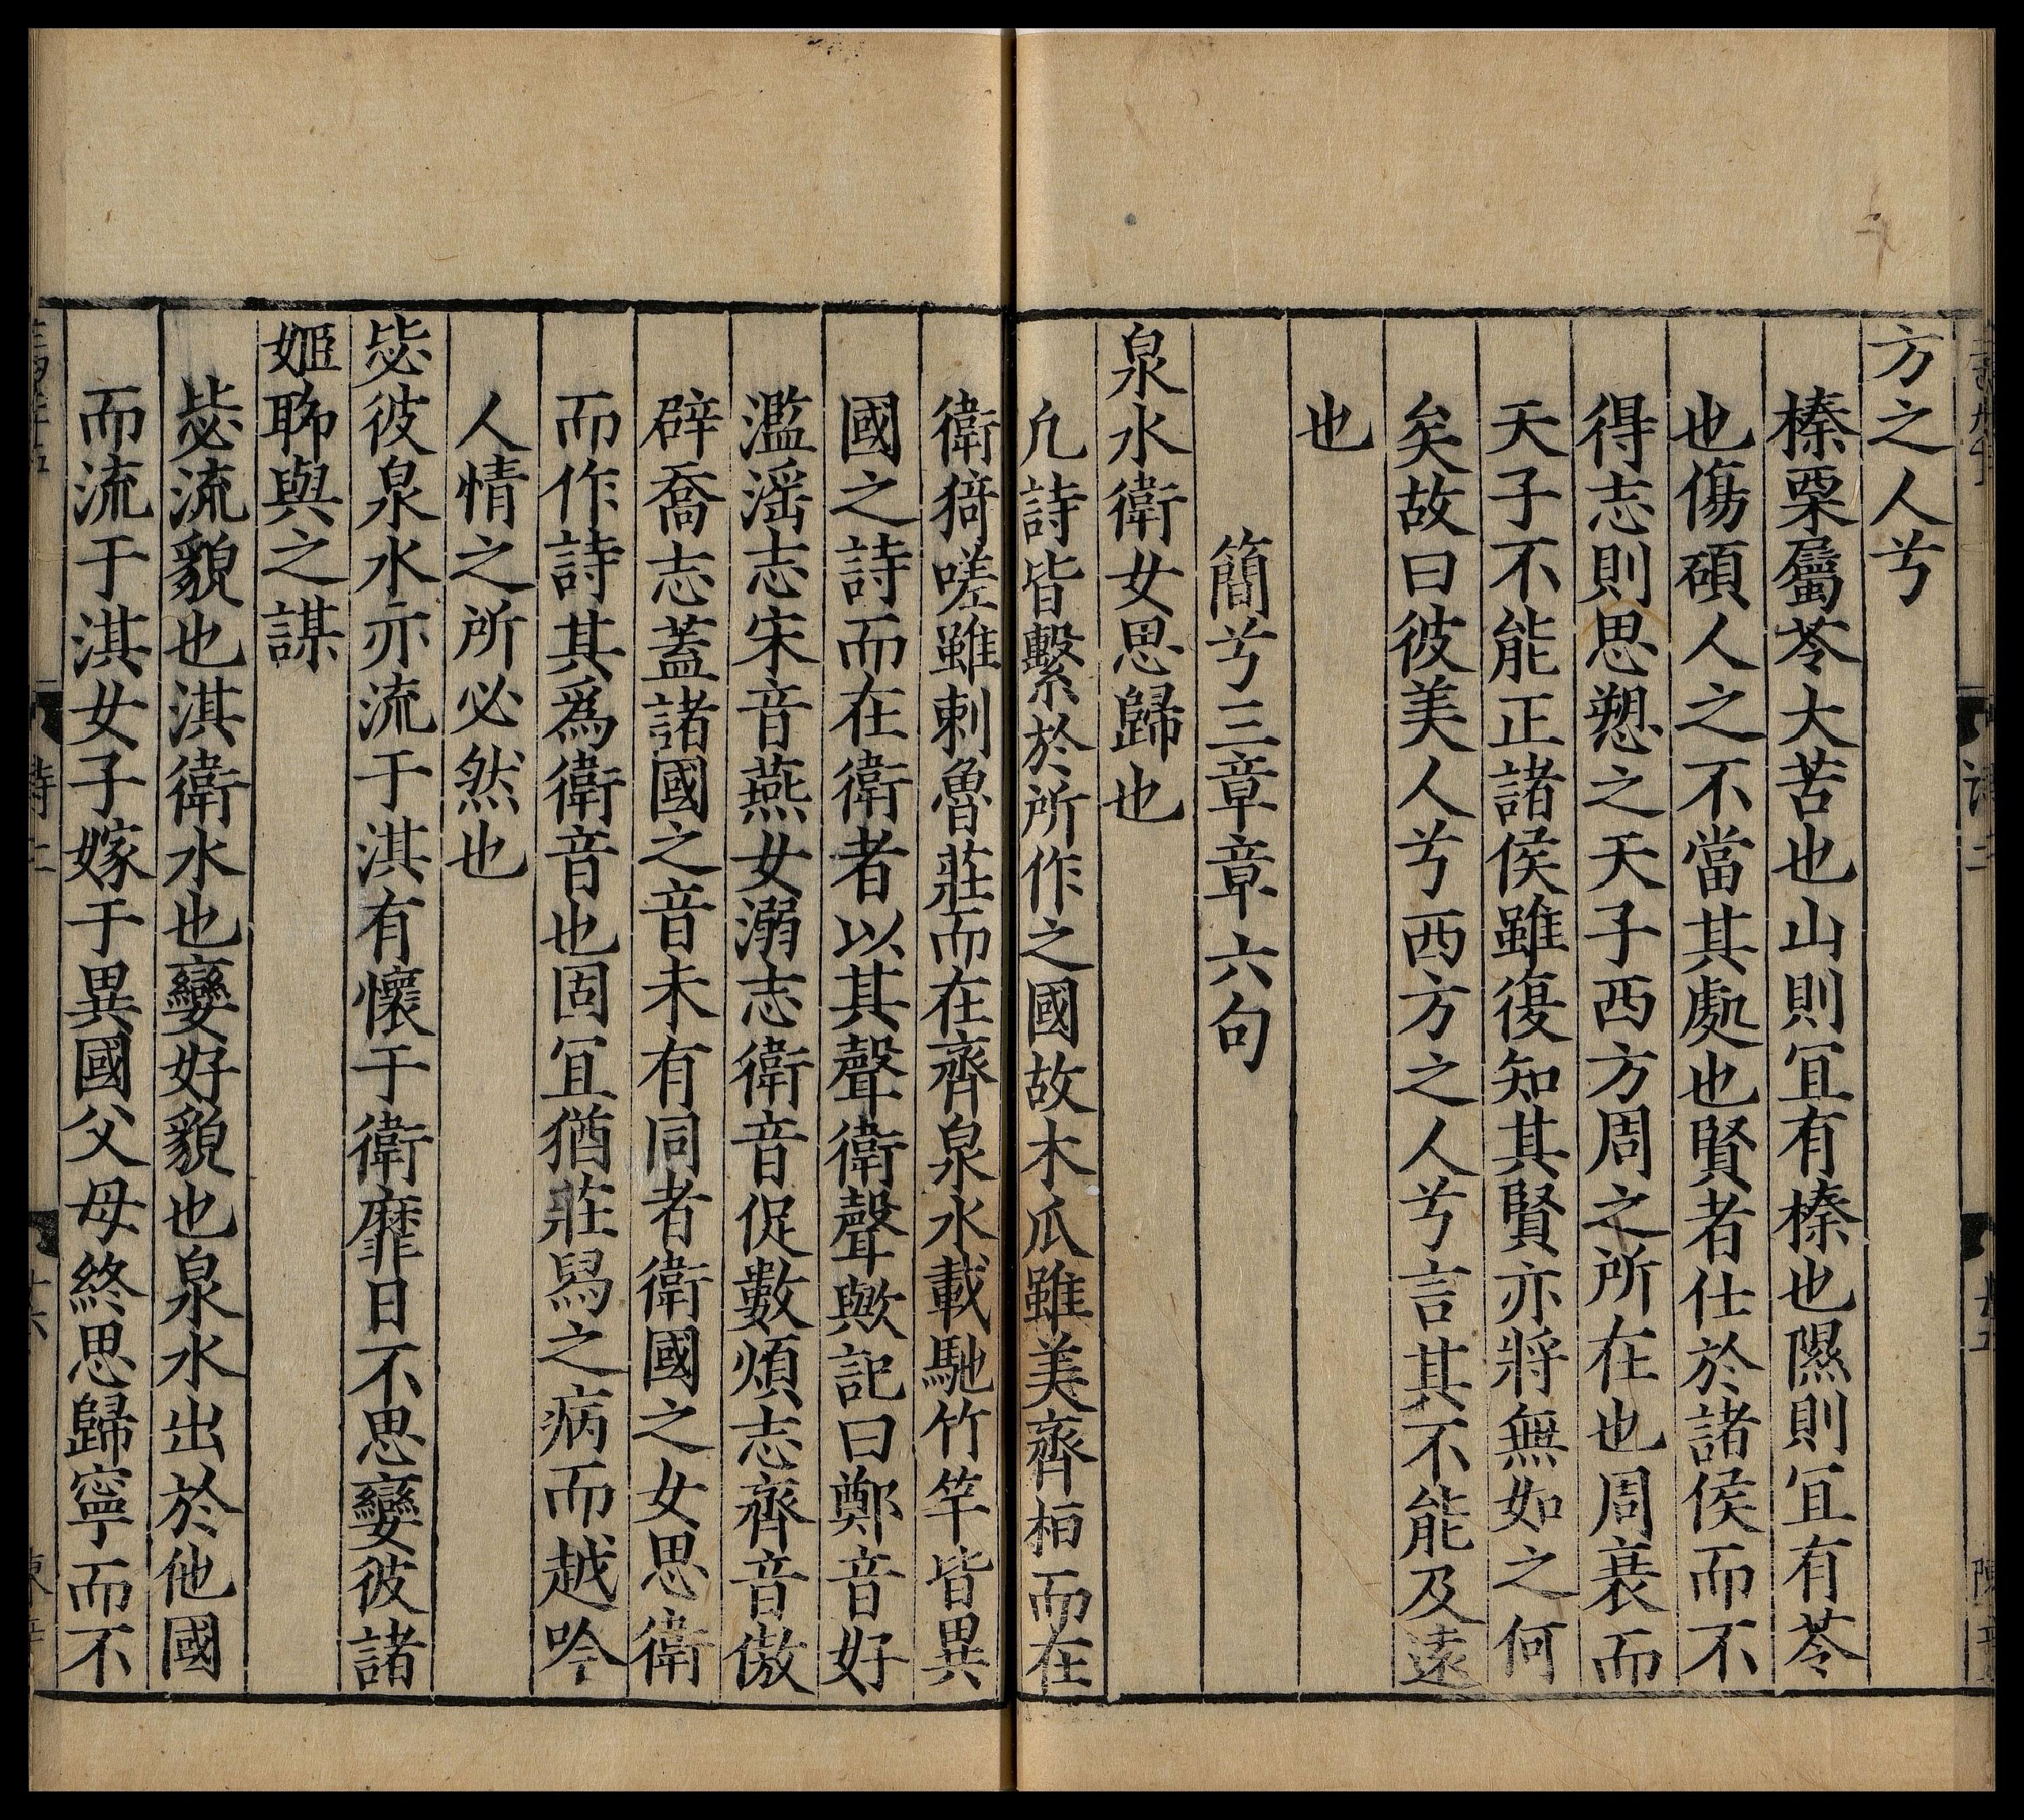 方之人兮
榛栗屬苓大苦也山則宜有榛也隰則宜有苓
也傷碩人之不當其處也賢者仕於諸侯而不
得志則思愬之天子西方周之所在也周衰而
天子不能正諸侯雖復知其賢亦將無如之何
矣故曰彼美人兮西方之人兮言其不能及遠
也
簡兮三章章六句
泉水衛女思歸也
凢詩皆繫於所作之國故木瓜雖美齊桓而在
衛猗嗟雖刺魯莊而在齊泉水載馳竹竿皆異
國之詩而在衛者以其聲衛聲歟記曰鄭音好
濫滛志宋音燕女溺志衛音促數煩志齊音傲
辟喬志蓋諸國之音未有同者衛國之女思衛
而作詩其爲衛音也固宜猶莊舄之病而越吟
人情之所必然也
毖彼泉水亦流于淇有懷于衛靡日不思孌彼諸
姬聊與之謀
毖流貌也淇衛水也孌好貌也泉水出於他國
而流于淇女子嫁于異國父母終思歸寧而不
詩二